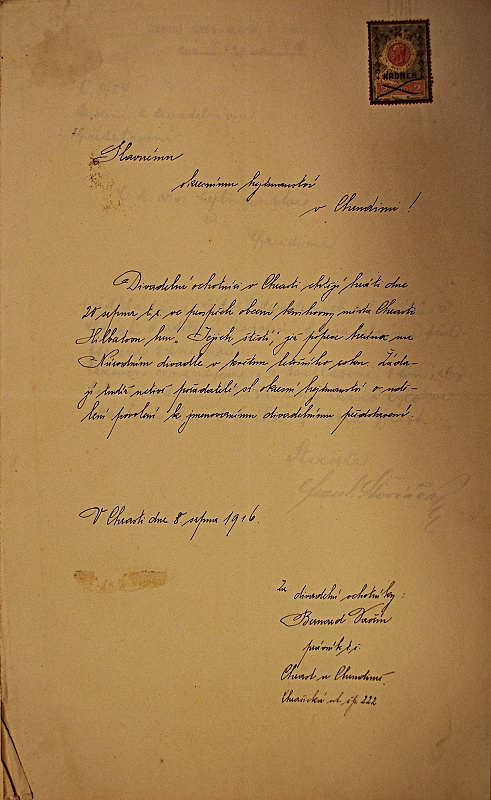 KRONEN
2
Slavnému
okresnímu hejtmanství
v Chrudimi!
Divadelní ochotníci v Chrasti chtějí hráti dne
20 srpna t.r. ve prospěch obecní knihovny města Chrasti
Hilbertovu hru „Jejich štěstí", jež poprvé hrána na
Národním divadle v květnu letošního roku. Žáda-
jí tudíž uctivě pořadatelé sl. okresní hejtmanství o udě-
lení povolení k jmenovanému divadelnímu představení.
V Chrasti dne 8 srpna 1916.
Za divadelní ochotníky:
Bernard
právník t.č.
Chrast u Chrudimě.
ul. čp. 222